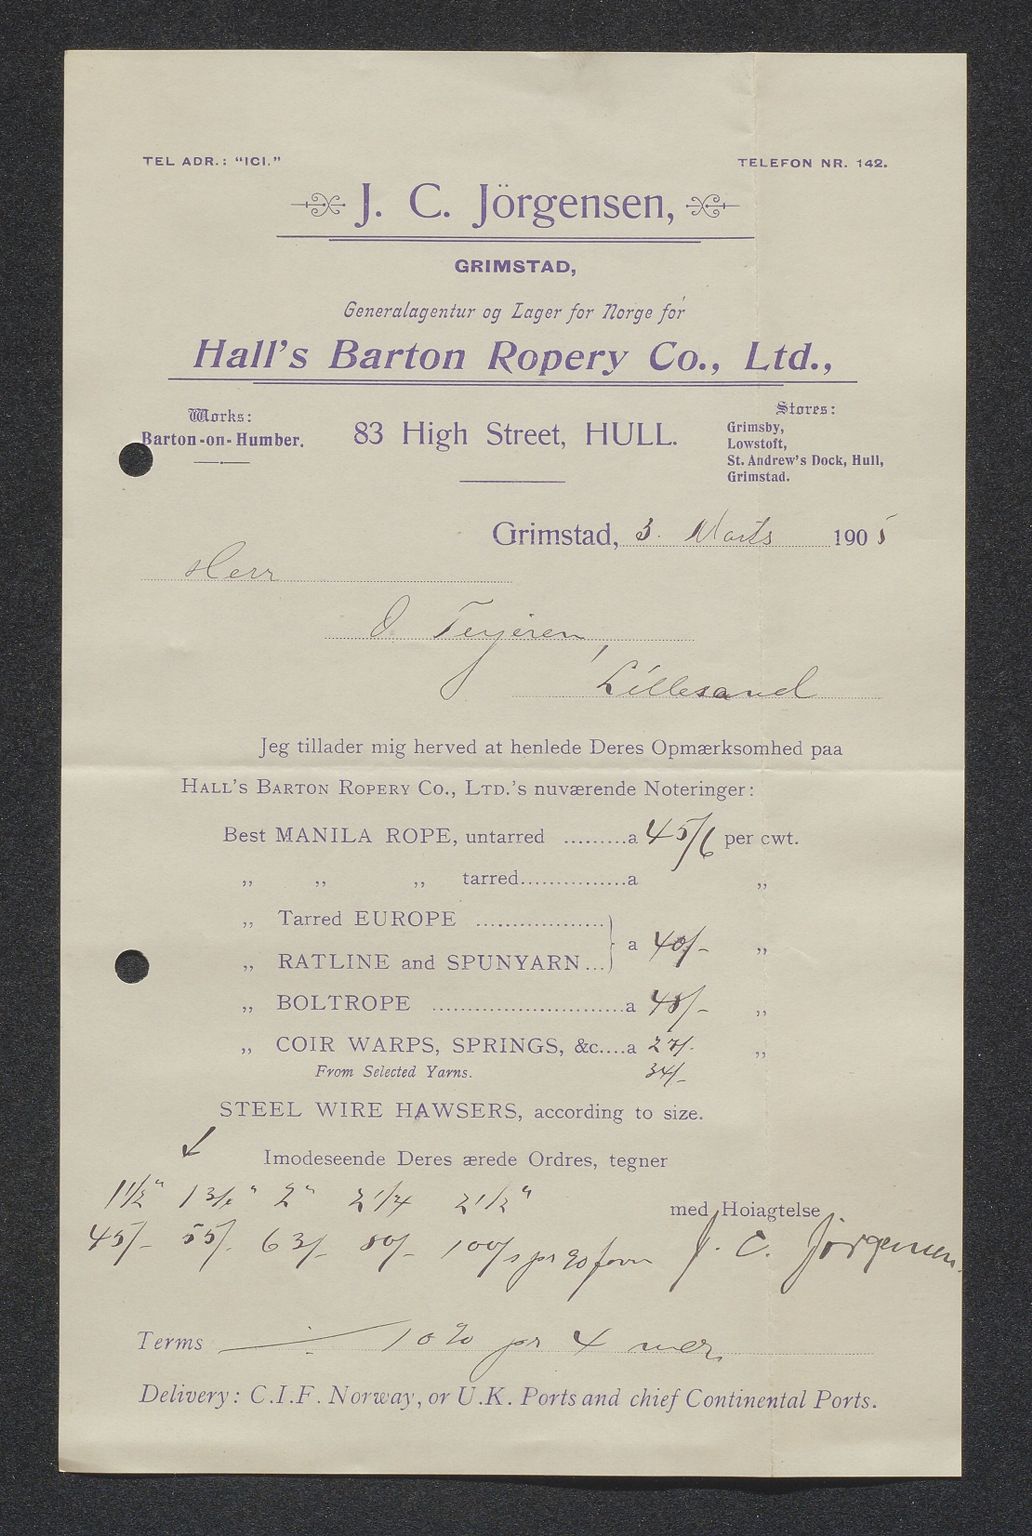 TEL ADR.: "ICI." TELEFON NR. 142.
J. C. Jörgensen,
GRIMSTAD,
Generalagentur og Lager for Norge for
Hall's Barton Ropery Co., Ltd.,
Works:
Barton-on-Humber.
83 High Street, HULL.
Stores:
Grimsby,
Lowstoft,
St. Andrew's Dock, Hull,
Grimstad.
Grimstad, 3. Marts 1905
Herr
O. Terjesen,
Lillesand
Jeg tillader mig herved at henlede Deres Opmærksomhed paa
HALL'S BARTON ROPERY CO., LTD.'s nuværende Noteringer:
Best MANILA ROPE, untarred .........a 45/6 per cwt.
„ „ „ tarred...............a „
„ Tarred EUROPE ..................
} a 40/- „
„ RATLINE and SPUNYARN...
„ BOLTROPE ............................a 48/- „
„ COIR WARPS, SPRINGS, &c....a 27/- „
From Selected Yarns. 34/-
STEEL WIRE HAWSERS, according to size.
Imodeseende Deres ærede Ordres, tegner
1 1/2" 1 3/4" 2" 2 1/4 2 1/2"
med Hoiagtelse
45/- 55/- 63/- 80/- 100/- pr 90 favn
J. C. Jörgensen.
Terms 10% pr 4 mdr.
Delivery: C.I.F. Norway, or U.K. Ports and chief Continental Ports.